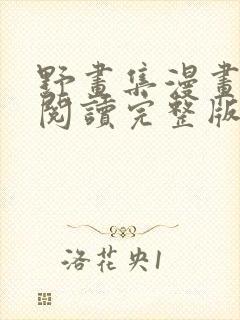 野畫集漫畫
閱讀完整版
洛花央1